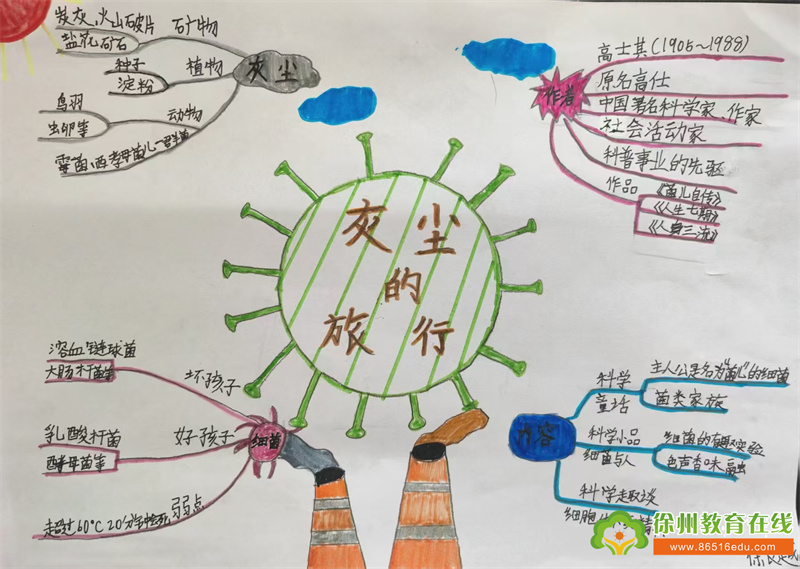 炭灰、火山碎片
矿物
盐花、矿石
种子
植物
淀粉
灰尘
鸟羽
动物
虫卵等
高士其(1905~1988)
原名高仕
作者
中国著名科学家、作家
社会活动家
科普事业的先驱
作品
《菌儿自传》
《人生七期》
《人身三流》
灰尘
的
旅行
溶血链球菌
坏孩子
大肠杆菌等
好孩子
乳酸杆菌
细菌
酵母菌等
弱点
超过60℃20分钟
主人公是名为“菌儿”的细菌
科学
童话
菌类家族
内容
科学小品
细菌与人
色声香味
科学趣谈
细胞
徐州教育在线
www.86516edu.com